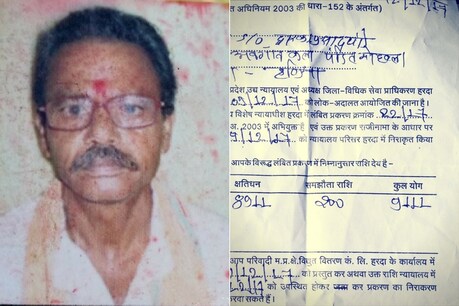 त अधिनियम 2003 की धारा-152 के अंतर्गत)
S/o
कला पंडित मोहल्ला
प्रदेश उच्च न्यायालय एवं अध्यक्ष जिला-विधिक सेवा प्राधिकरण हरदा
/12/17 को लोक-अदालत आयोजित की जाना है।
विशेष न्यायाधीश हरदा में लंबित प्रकरण क्रमांक 22/17
अ. 2003 में अभियुक्त है एवं उक्त प्रकरण राजीनामा के आधार पर
9/12/17 को न्यायालय परिसर हरदा में निराकृत किया
आपके विरूद्ध लंबित प्रकरण में निम्नानुसार राशि देय है-
क्षतिधन समझौता राशि कुल योग
8911 200 9111
आप परिवादी म.प्र.क्षे.विद्युत वितरण कं. लि. हरदा के कार्यालय में
/12/17 को प्रस्तुत कर अथवा उक्त राशि न्यायालय में
को उपस्थित होकर जमा कर प्रकरण का निराकरण
करवा सकते हैं।